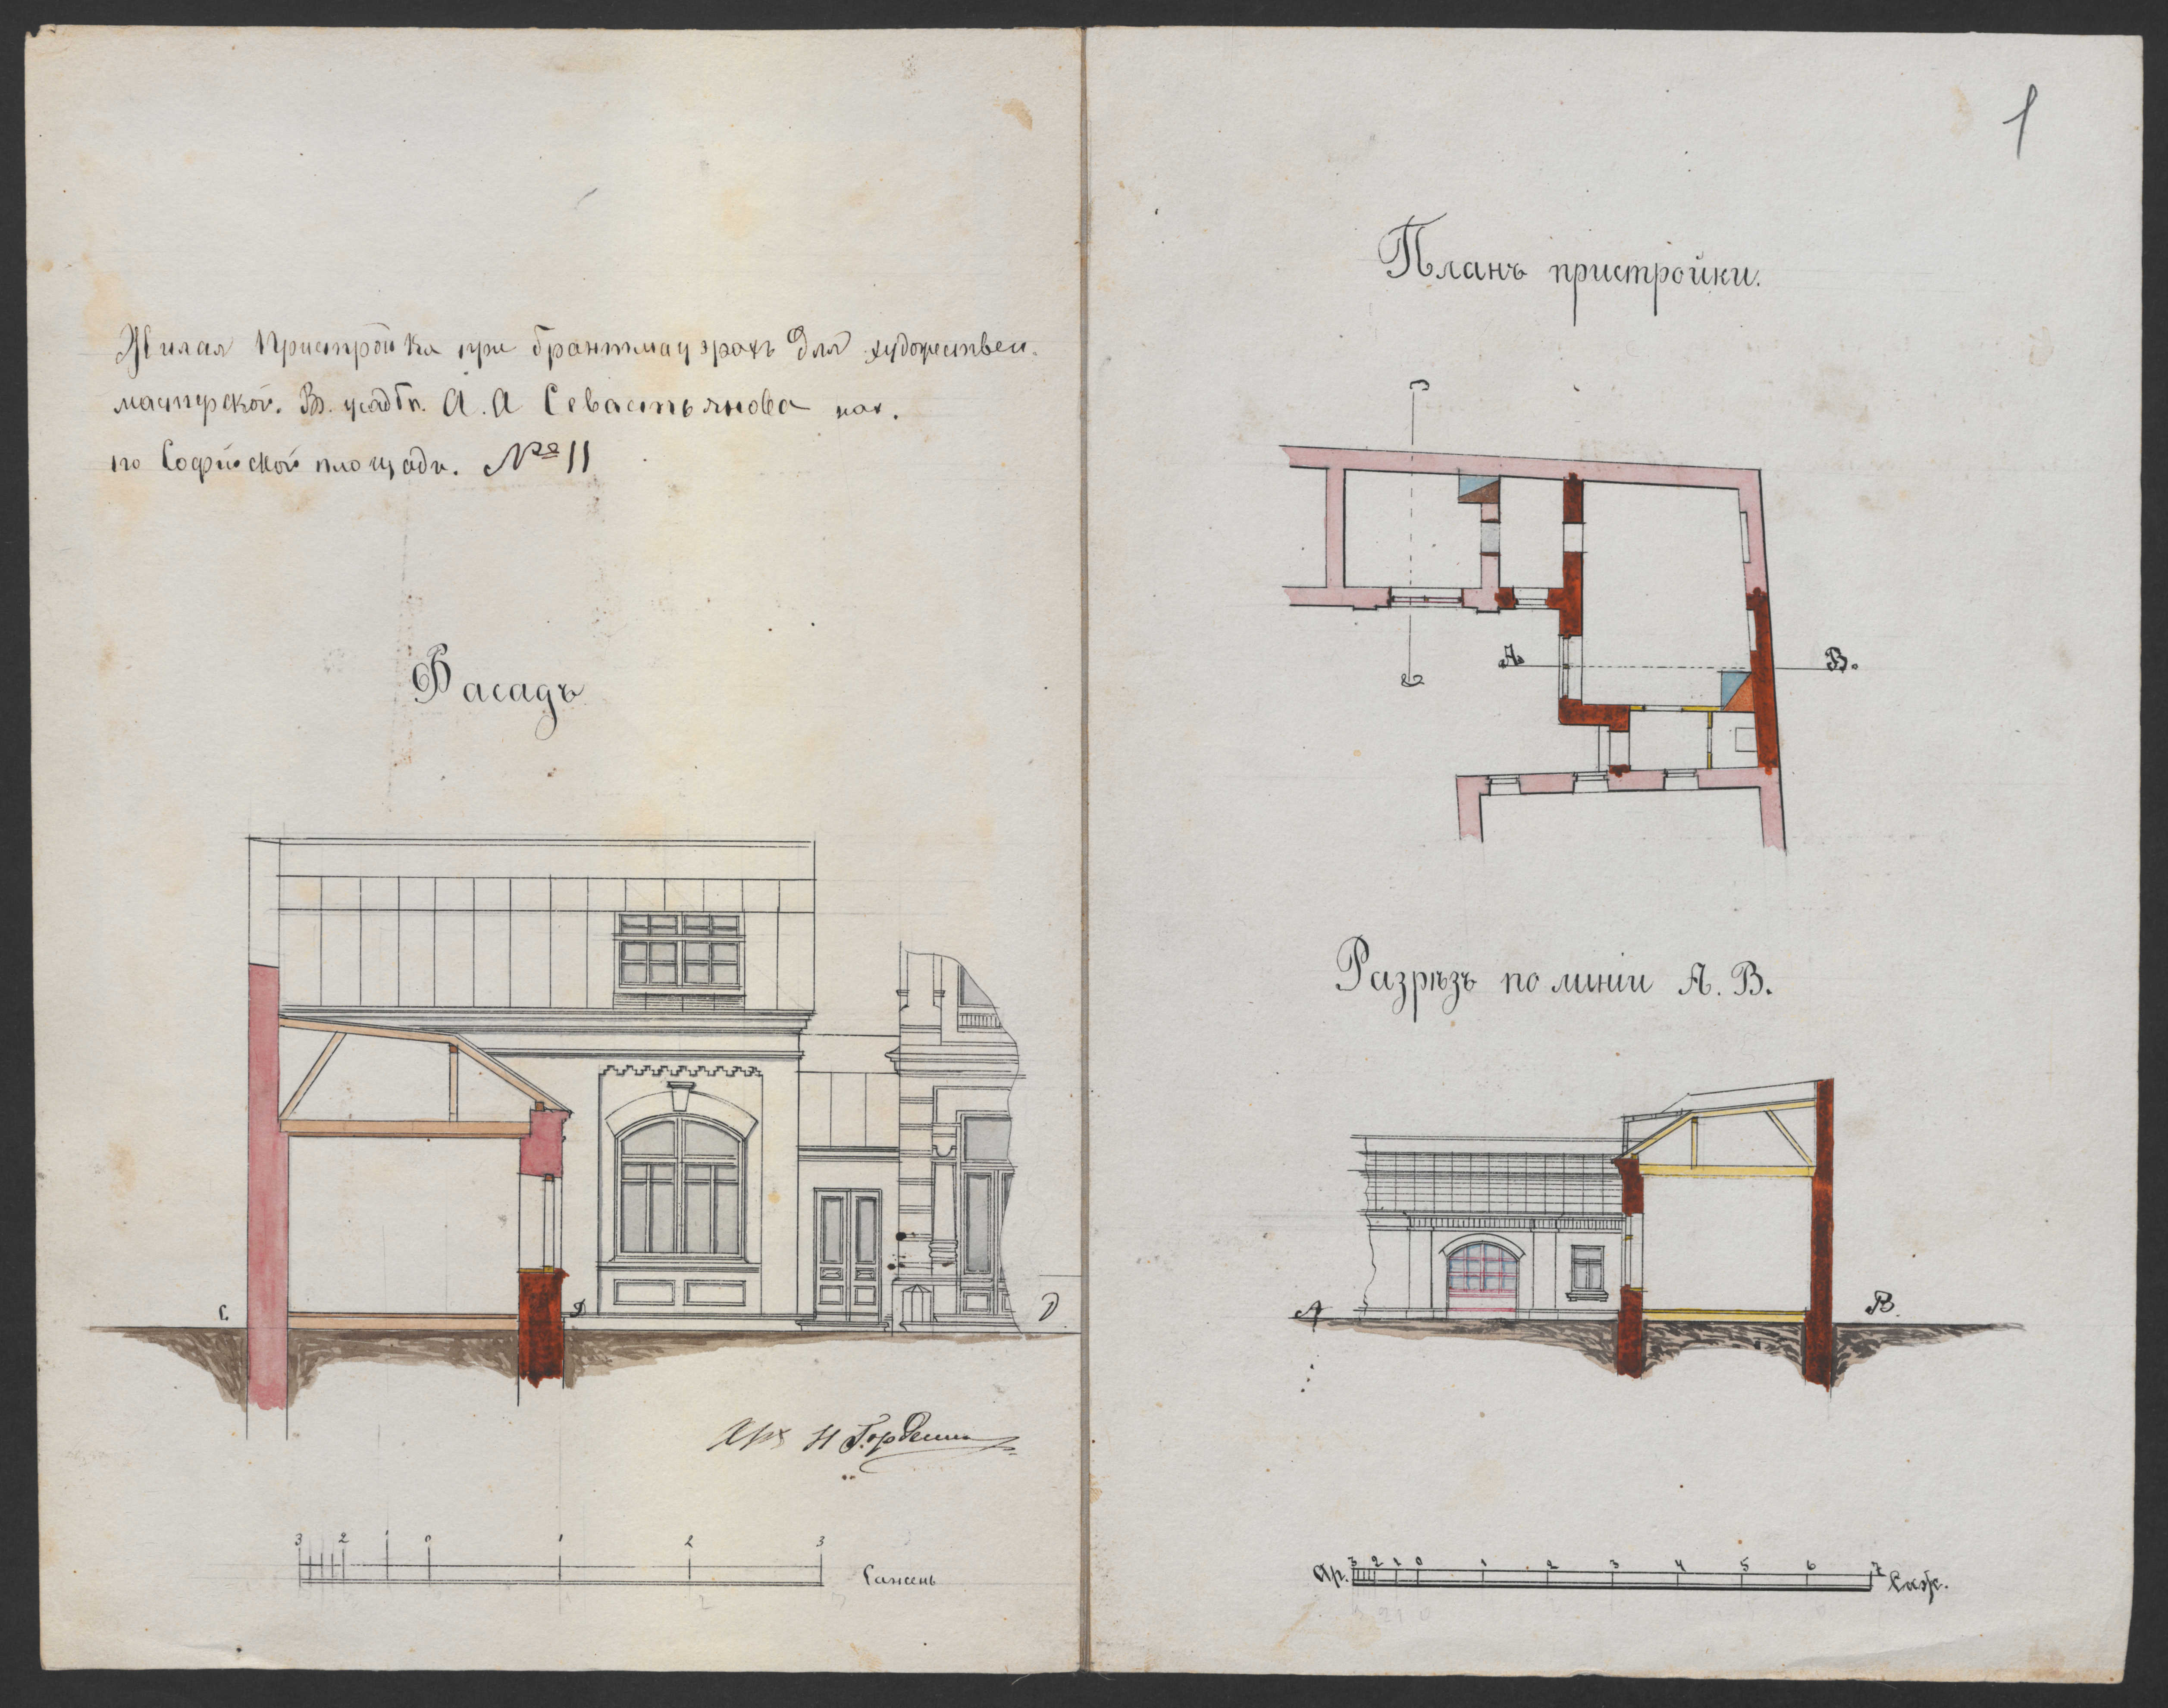 Жилая Пристройка при брантмауэрахъ для художествен.
мастерской. Въ усадьб. А. А Севастьянова нах.
по Софійской площади. № 11
Фасадъ
С. Д D
Арх Н Горденин
3 2 1 0 1 2 3 Сажень
1
Планъ пристройки.
А. В.
Разрѣзъ по линіи А. В.
А В.
Ар. 3 2 1 0 1 2 3 4 5 6 7 Саж.